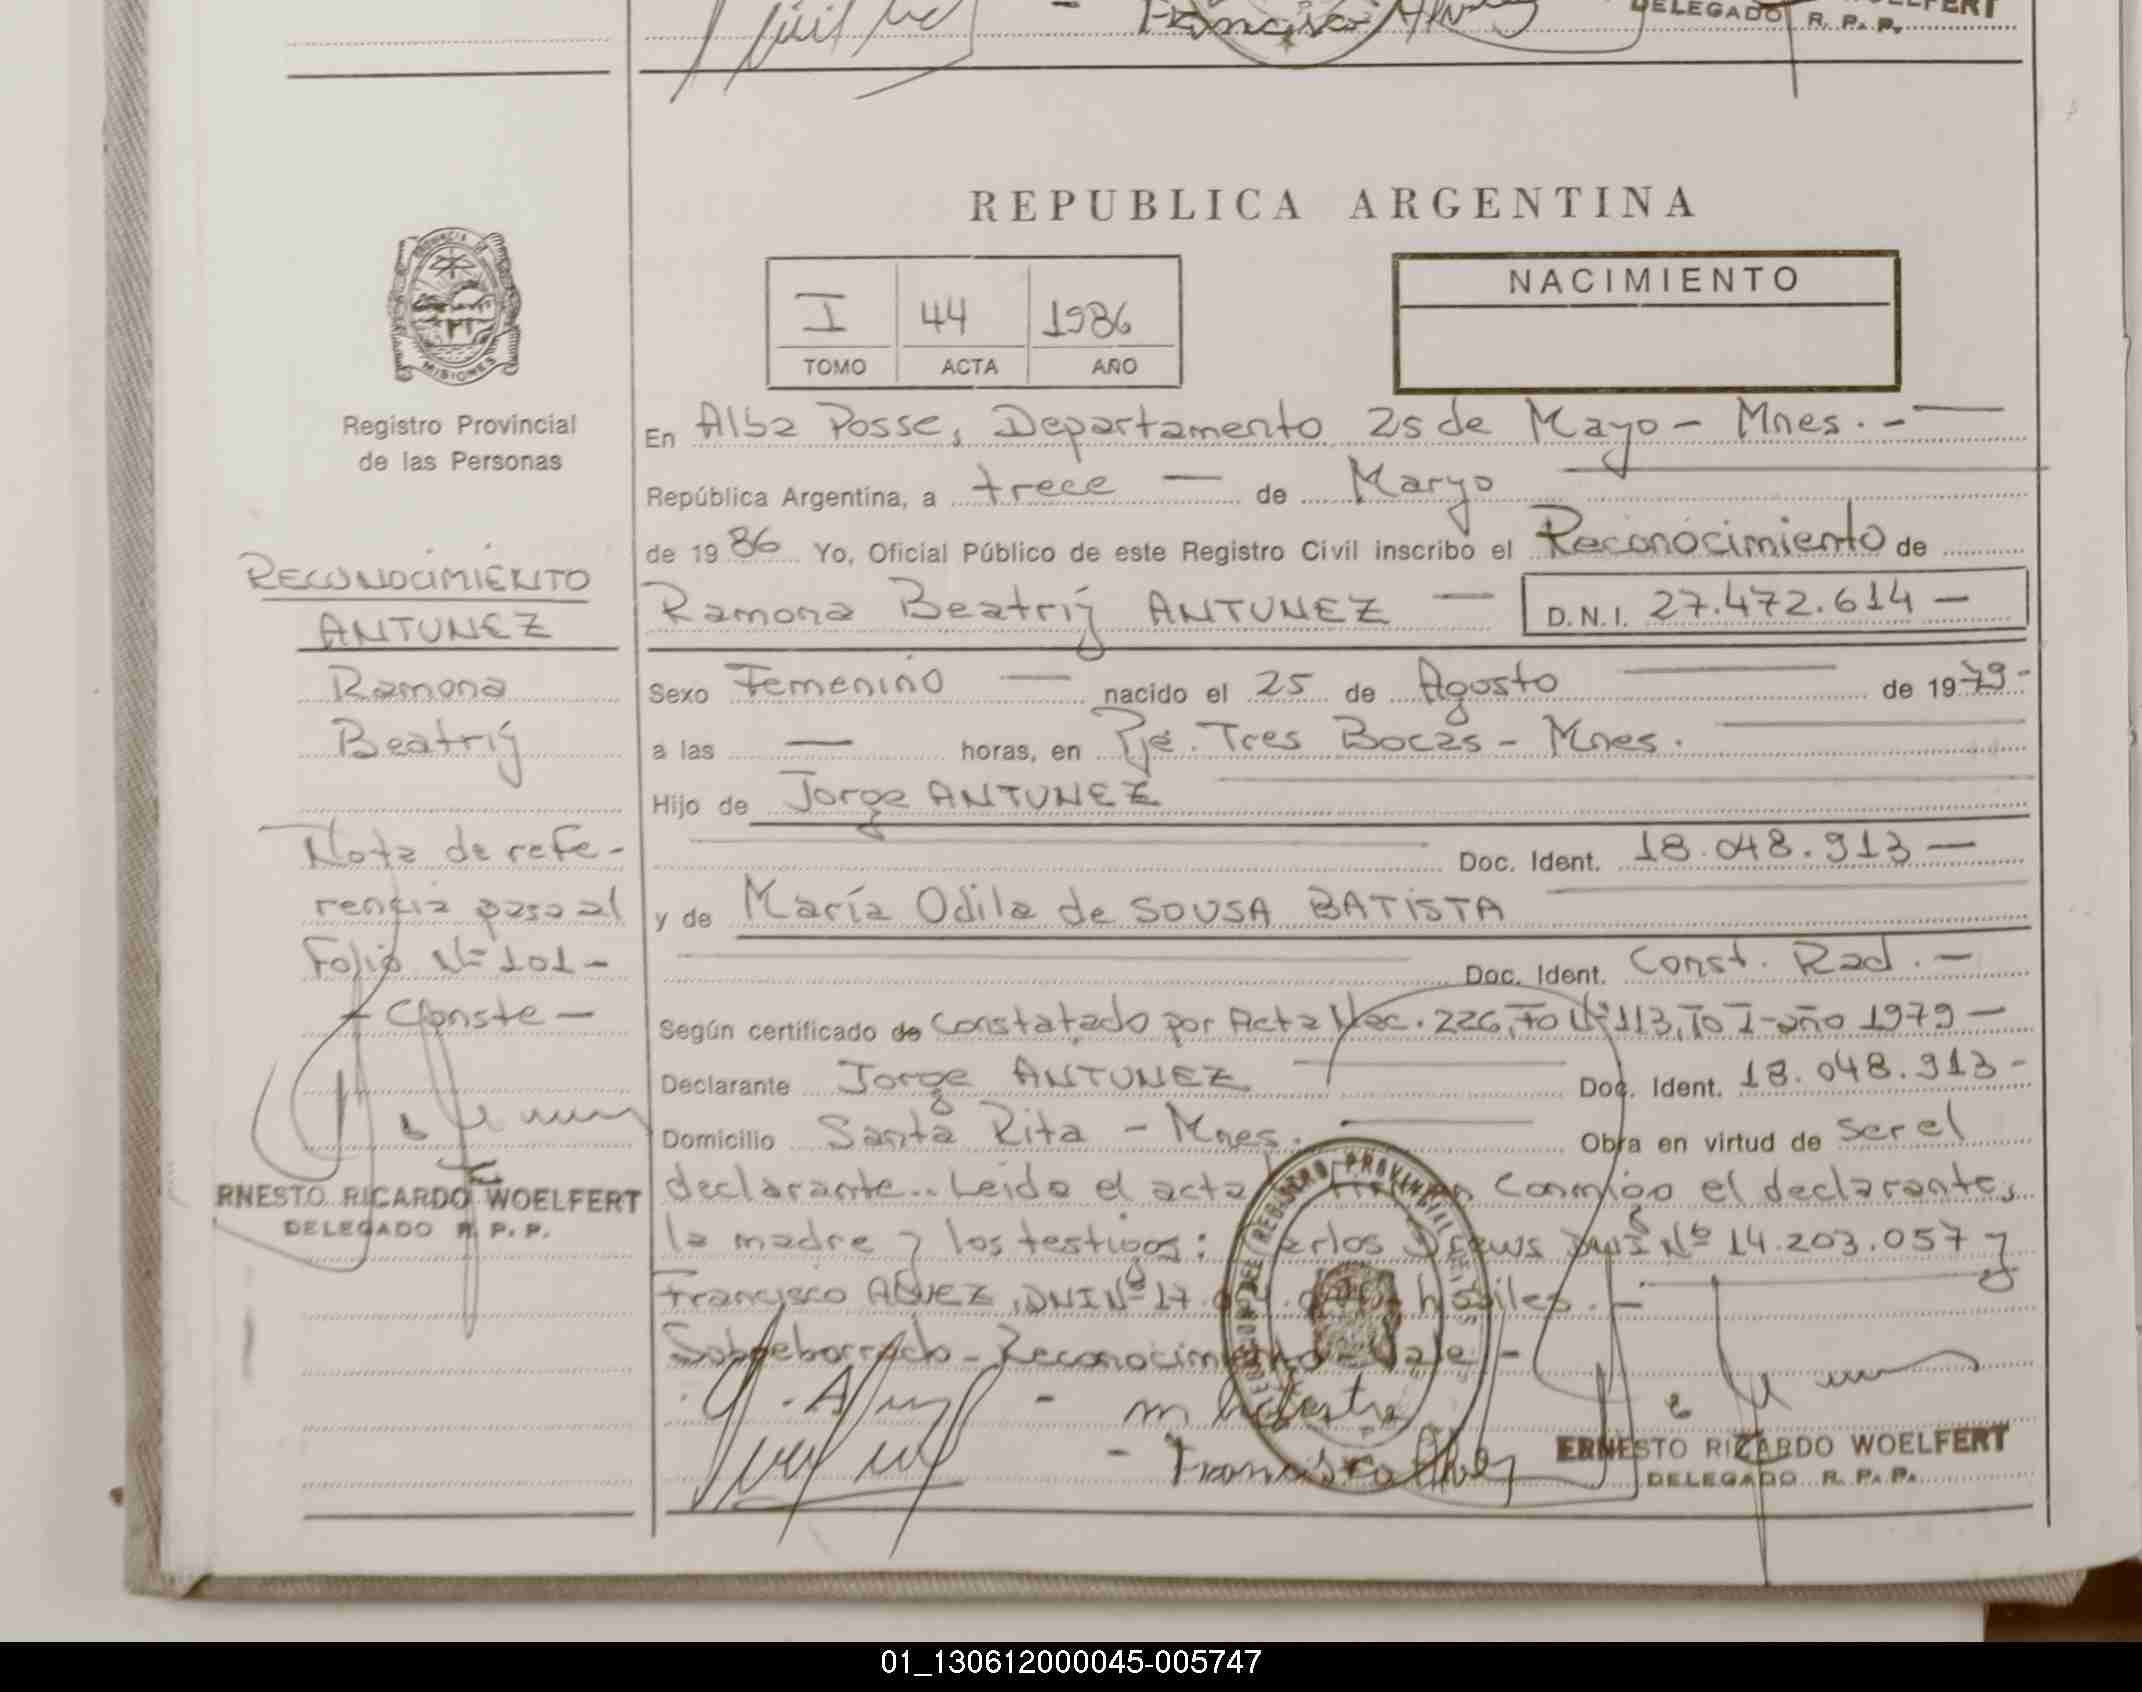 Francisco Alvez
DELEGADO R. P. P.
REPUBLICA ARGENTINA
NACIMIENTO
I 44 1986
TOMO ACTA AÑO
PROVINCIA DE MISIONES
Registro Provincial
de las Personas
RECONOCIMIENTO
ANTUNEZ
Ramona
Beatriz
Nota de refe-
rencia pasa al
Folio Nº 101-
- Conste -
RNESTO RICARDO WOELFERT
DELEGADO R. P. P.
En Alba Posse, Departamento 25 de Mayo - Mnes. -
República Argentina, a trece de Marzo
de 1986 Yo, Oficial Público de este Registro Civil inscribo el Reconocimiento de
Ramona Beatriz ANTUNEZ D.N.I. 27.472.614 -
Sexo Femenino nacido el 25 de Agosto de 1979-
a las — horas, en Pje. Tres Bocas - Mnes.
Hijo de Jorge ANTUNEZ
Doc. Ident. 18.048.913 -
y de María Odila de SOUSA BATISTA
Doc. Ident. Const. Rad. -
Según certificado de Constatado por Acta Nac. 226, Fo Nº 113, To I - año 1979 -
Declarante Jorge ANTUNEZ Doc. Ident. 18.048.913 -
Domicilio Santa Rita - Mnes. Obra en virtud de ser el
declarante.. Leida el acta conmigo el declarante,
la madre y los testigos: Carlos DNI Nº 14.203.057 y
Francisco ALVEZ, DNI Nº 17. hábiles. -
Sobreborrado - Reconocimiento - Vale -
REGISTRO PROVINCIAL
Francisco Alvez
ERNESTO RICARDO WOELFERT
DELEGADO R. P. P.
01_130612000045-005747